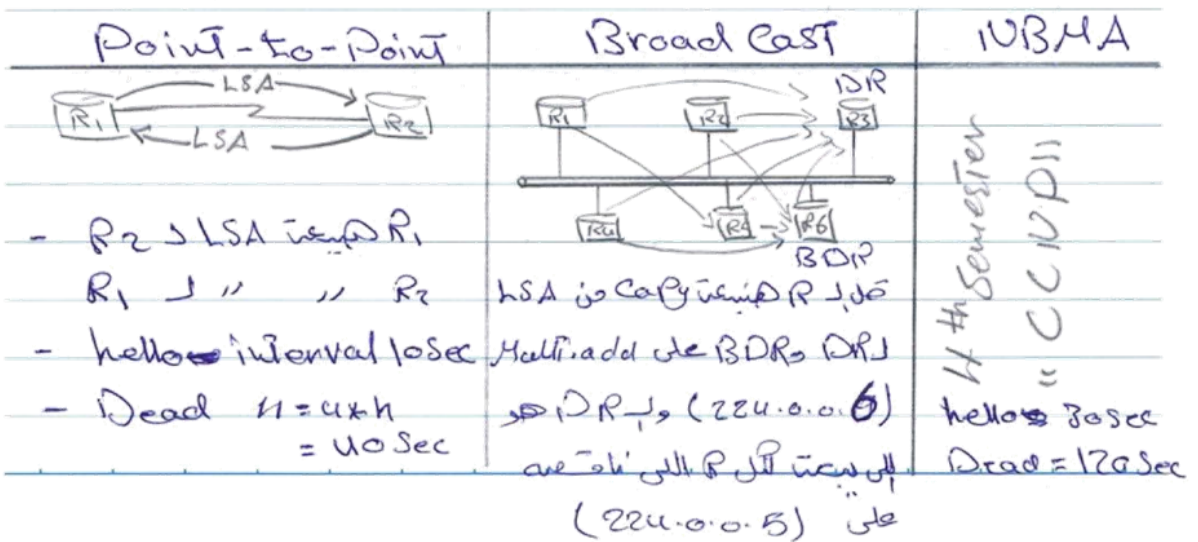 Point-to-Point
LSA
R1
R2
LSA
- R1 هيبعت LSA ل R2
R2 " " ل R1
- hello interval 10Sec
- Dead 11 = 4*h
= 40 Sec
Broad Cast
DR
R1
R2
R3
R4
R5
R6
BDR
كل R هيبعت Copy من LSA
ل DR و BDR على Multi.add
(224.0.0.6) وال DR هو
إللى يبعت لكل R اللى ناقصه
على (224.0.0.5)
NBMA
4th Semester
"CCNP"
hello 30Sec
Dead = 120Sec